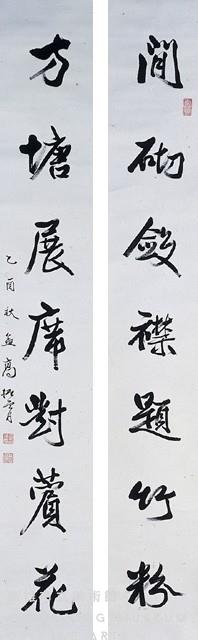 閒砌斂襟題竹粉
方塘展席對藚花
乙酉秋